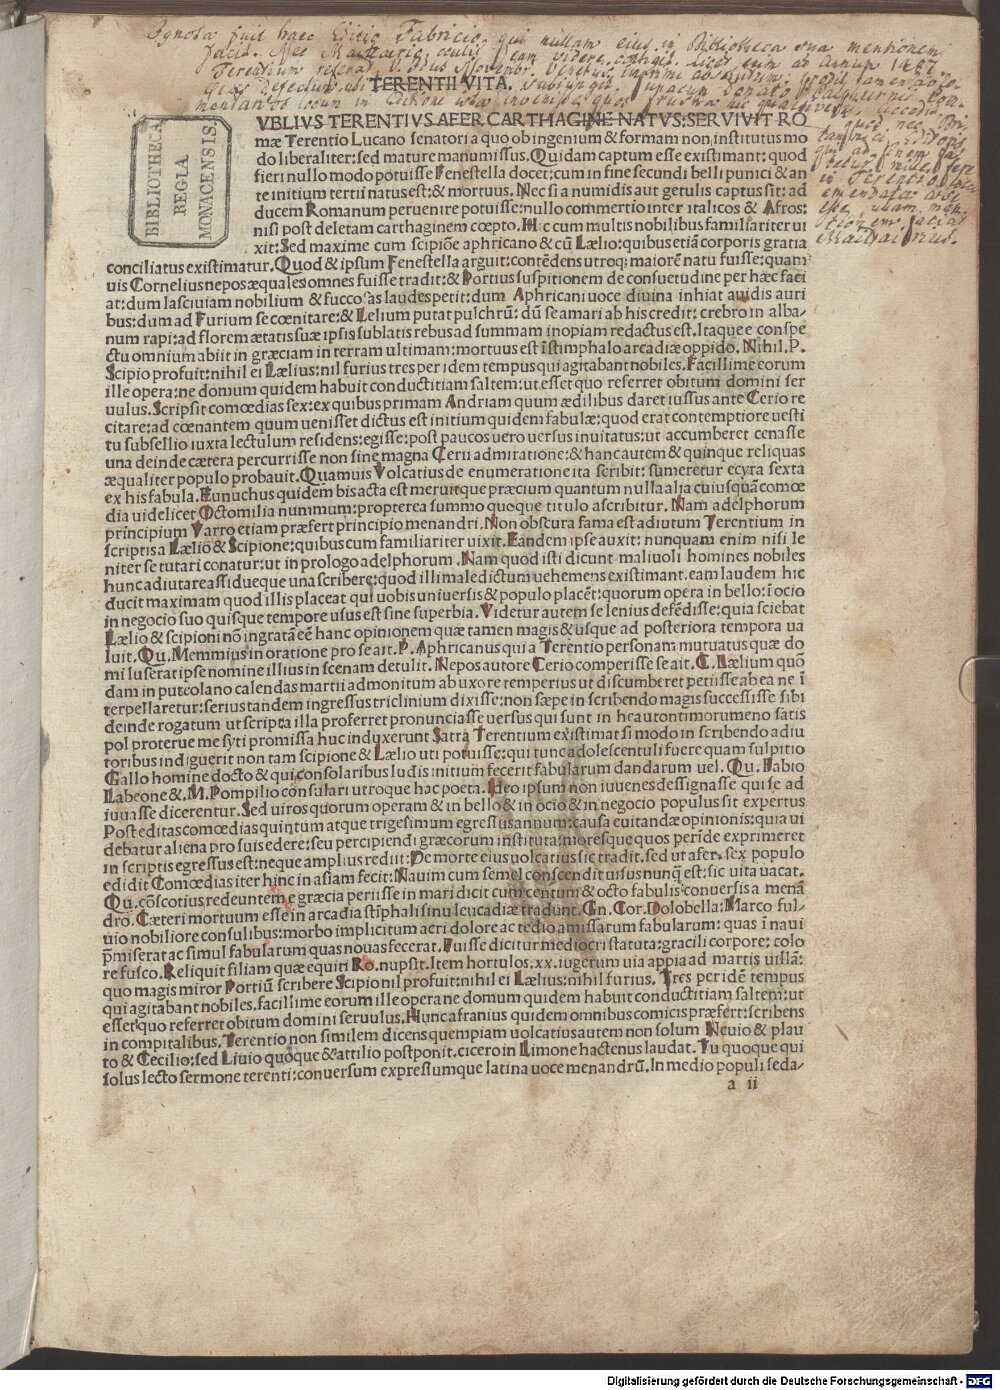 TERENTII VITA.
BIBLIOTHECA
REGIA
MONACENSIS.
VBLIVS TERENTIVS AFER CARTHAGINE NATVS: SERVIVIT RO
mæ Terentio Lucano senatori a quo ob ingenium & formam non institutus mo
do liberaliter: sed mature manumissus. Quidam captum esse existimant: quod
fieri nullo modo potuisse Fenestella docet: cum in fine secundi belli punici & an
te initium tertii natus est: & mortuus. Nec si a numidis aut getulis captus sit: ad
ducem Romanum peruenire potuisse: nullo commertio inter italicos & Afros:
nisi post deletam carthaginem cœpto. Hic cum multis nobilibus familiariter ui
xit: Sed maxime cum scipiōe aphricano & cū Lælio: quibus etiā corporis gratia
conciliatus existimatur. Quod & ipsum Fenestella arguit: contēdens utroq; maiorē natu fuisse: quam
uis Cornelius nepos æquales omnes fuisse tradit: & Portius suspitionem de consuetudine per hæc faci
at: dum lasciuiam nobilium & fuccosas laudes petit: dum Aphricani uoce diuina inhiat auidis auri
bus: dum ad Furium se cœnitare: & Lelium putat pulchrū: dū se amari ab his credit: crebro in alba-
num rapi: ad florem ætatis suæ ipsis sublatis rebus ad summam inopiam redactus est. Itaque e conspe
ctu omnium abiit in græciam in terram ultimam: mortuus est ī stimphalo arcadiæ oppido. Nihil .P.
Scipio profuit: nihil ei Lælius: nil furius tres per idem tempus qui agitabant nobiles. Facillime eorum
ille opera: ne domum quidem habuit conductitiam saltem: ut esset quo referret obitum domini ser
uulus. Scripsit comœdias sex: ex quibus primam Andriam quum ædilibus daret iussus ante Cerio re
citare: ad cœnantem quum uenisset dictus est initium quidem fabulæ: quod erat contemptiore uesti
tu subsellio iuxta lectulum residens: egisse: post paucos uero uersus inuitatus: ut accumberet cenasse
una deinde cætera percurrisse non sine magna Cerii admiratione: & hanc autem & quinque reliquas
æqualiter populo probauit. Quamuis Volcatius de enumeratione ita scribit: sumeretur ecyra sexta
ex his fabula. Eunuchus quidem bis acta est meruitque præcium quantum nulla alia cuiusquā comœ
dia uidelicet Octo milia nummum: propterea summo quoque titulo ascribitur. Nam adelphorum
principium Varro etiam præfert principio menandri. Non obscura fama est adiutum Terentium in
scriptis a Lælio & Scipione: quibus cum familiariter uixit. Eandem ipse auxit: nunquam enim nisi le
niter se tutari conatur: ut in prologo adelphorum. Nam quod isti dicunt maliuoli homines nobiles
hunc adiutare assidueque una scribere: quod illi maledictum uehemens existimant. eam laudem hic
ducit maximam quod illis placeat qui uobis uniuersis & populo placēt: quorum opera in bello: ī ocio
in negocio suo quisque tempore usus est sine superbia. Videtur autem se lenius defēdisse: quia sciebat
Lælio & scipioni nō ingratā eē hanc opinionem quæ tamen magis & usque ad posteriora tempora ua
luit. Qu. Memmius in oratione pro se ait. P. Aphricanus qui a Terentio personam mutuatus quæ do
mi luserat ipse nomine illius in scenam detulit. Nepos autore Cerio comperisse se ait. C. Lælium quō
dam in puteolano calendas martii admonitum ab uxore temperius ut discumberet petiisse ab ea ne ī
terpellaretur: serius tandem ingressus triclinium dixisse: non sæpe in scribendo magis successisse sibi
deinde rogatum ut scripta illa proferret pronunciasse uersus qui sunt in heautontimorumeno satis
pol proterue me syti promissa huc induxerunt Satra Terentium existimat si modo in scribendo adiu
toribus indiguerit non tam scipione & Lælio uti potuisse: qui tunc adolescentuli fuere quam sulpitio
Gallo homine docto & qui consolaribus ludis initium fecerit fabularum dandarum uel. Qu. Fabio
Labeone &. M. Pompilio consulari utroque hac poeta. Ideo ipsum non iuuenes dessignasse qui se ad
iuuasse dicerentur. Sed uiros quorum operam & in bello & in ocio & in negocio populus sit expertus
Post editas comœdias quintum atque trigesimum egressus annum: causa euitandæ opinionis: quia ui
debatur aliena pro suis edere: seu percipiendi græcorum instituta: moresque quos perīde exprimeret
in scriptis egressus est: neque amplius rediit: De morte eius uolcatius sic tradit. sed ut afer. sex populo
edidit Comœdias iter hinc in asiam fecit: Nauim cum semel conscendit uisus nunq̄ est: sic uita uacat.
Qu. cōscotius redeuntem e græcia periisse in mari dicit cum centum & octo fabulis conuersis a menā
dro. Cæteri mortuum esse in arcadia stīphali sinu leucadiæ tradunt. Gn. Cor. Dolobella: Marco ful-
uio nobiliore consulibus: morbo implicitum acri dolore ac tedio amissarum fabularum: quas ī naui
p̄miserat ac simul fabularum quas nouas fecerat. Fuisse dicitur mediocri statuta: gracili corpore: colo
re fusco. Reliquit filiam quæ equiti Ro. nupsit. Item hortulos. xx. iugerum uia appia ad martis uillā:
quo magis miror Portiū scribere Scipio nil profuit: nihil ei Lælius: nihil furius. Tres per idē tempus
qui agitabant nobiles. facillime eorum ille opera ne domum quidem habuit conductitiam saltem: ut
esset quo referret obitum domini seruulus. Hunc afranius quidem omnibus comicis præfert: scribens
in compitalibus. Terentio non similem dicens quempiam uolcatius autem non solum Neuio & plau
to & Cecilio: sed Liuio quoque & attilio postponit. cicero in Limone hactenus laudat. Tu quoque qui
solus lecto sermone terenti: conuersum expressumque latina uoce menandrū. In medio populi seda-
a ii
Digitalisierung gefördert durch die Deutsche Forschungsgemeinschaft - DFG